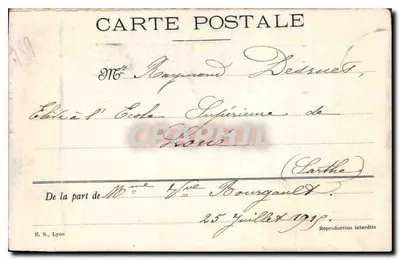 CARTE POSTALE
189
Mr Raymond Desrues,
Elève à l'Ecole Supérieure de
Loué
(Sarthe)
De la part de Mme Vve Bourgault.
25 Juillet 1915.
B. S., Lyon
Reproduction interdite